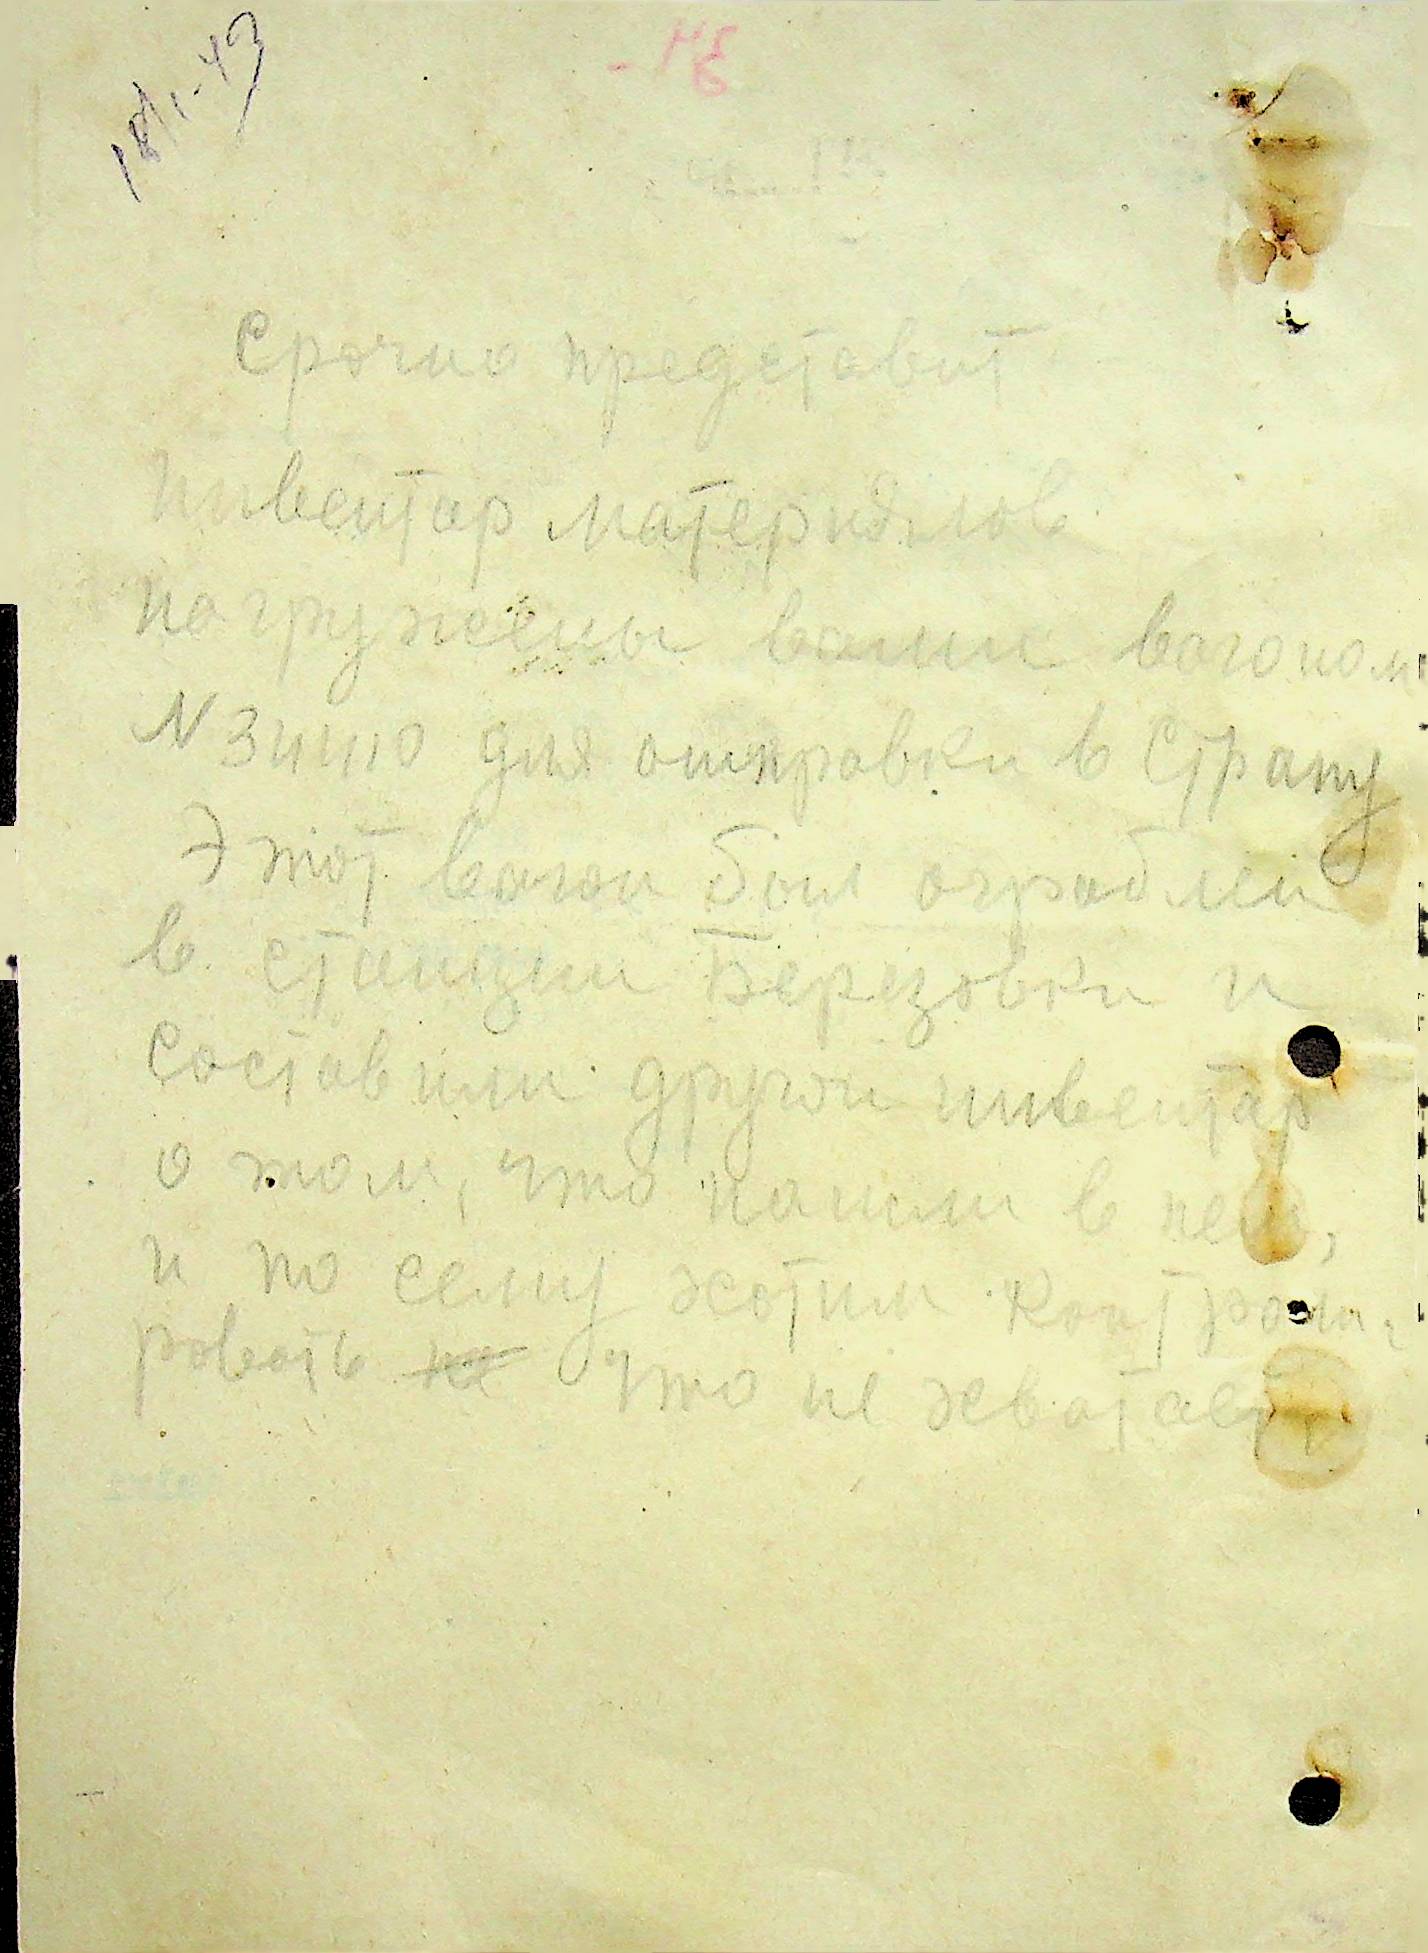 18/I-43
Срочно представит
инвентар материалов
погружены вами вагоном
N 34410 для отправки в Страну
Этот вагон был ограблен
в станции Березовки и
составили другой инвентар
о том, что нашли в нем,
и по сему хотим контроли-
ровать что не хватает